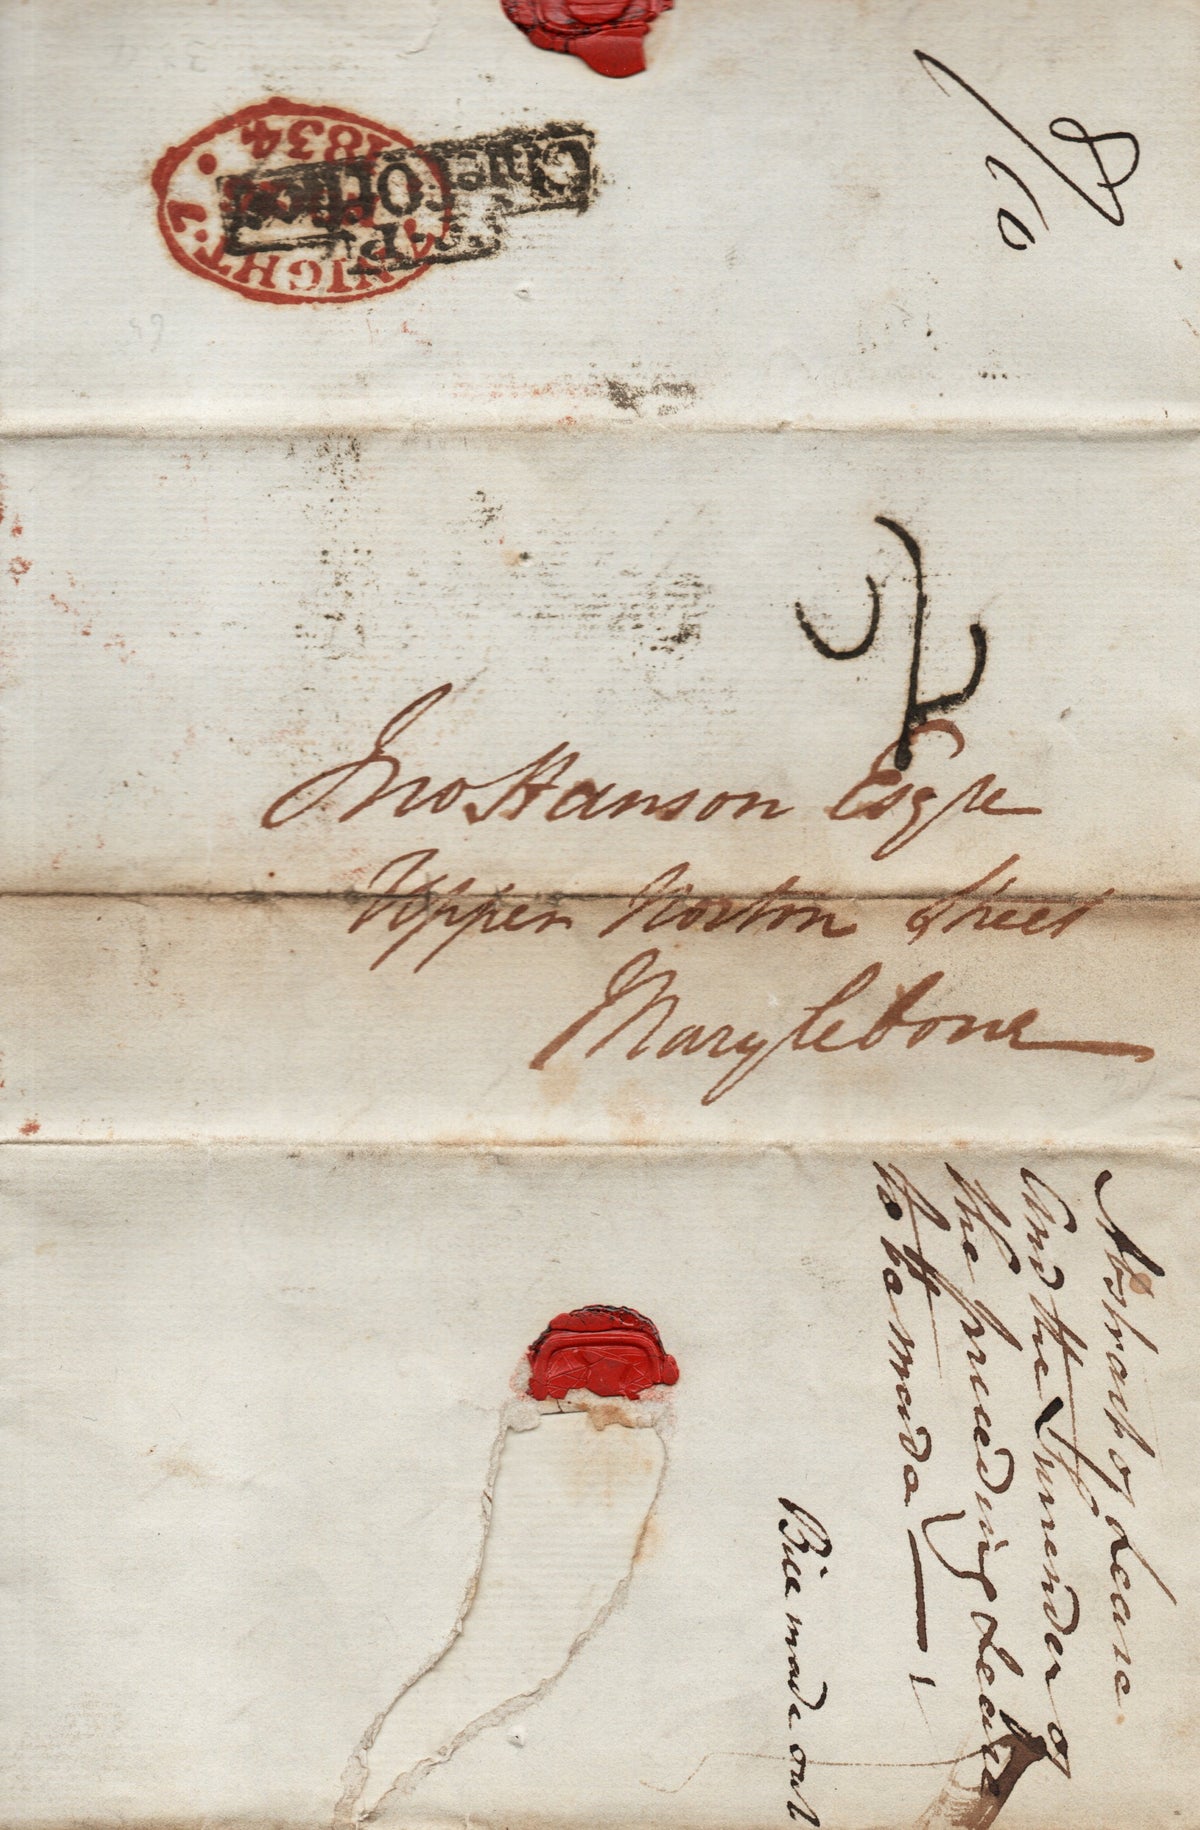 8/10
7.NIGHT.7
1834
T.P
Chief Office
Jno Hanson Esqre
Upper Norton Street
Marylebone
Abstract of Lease
And the Surrender of
the preceding Lease
to be made
Bill made out